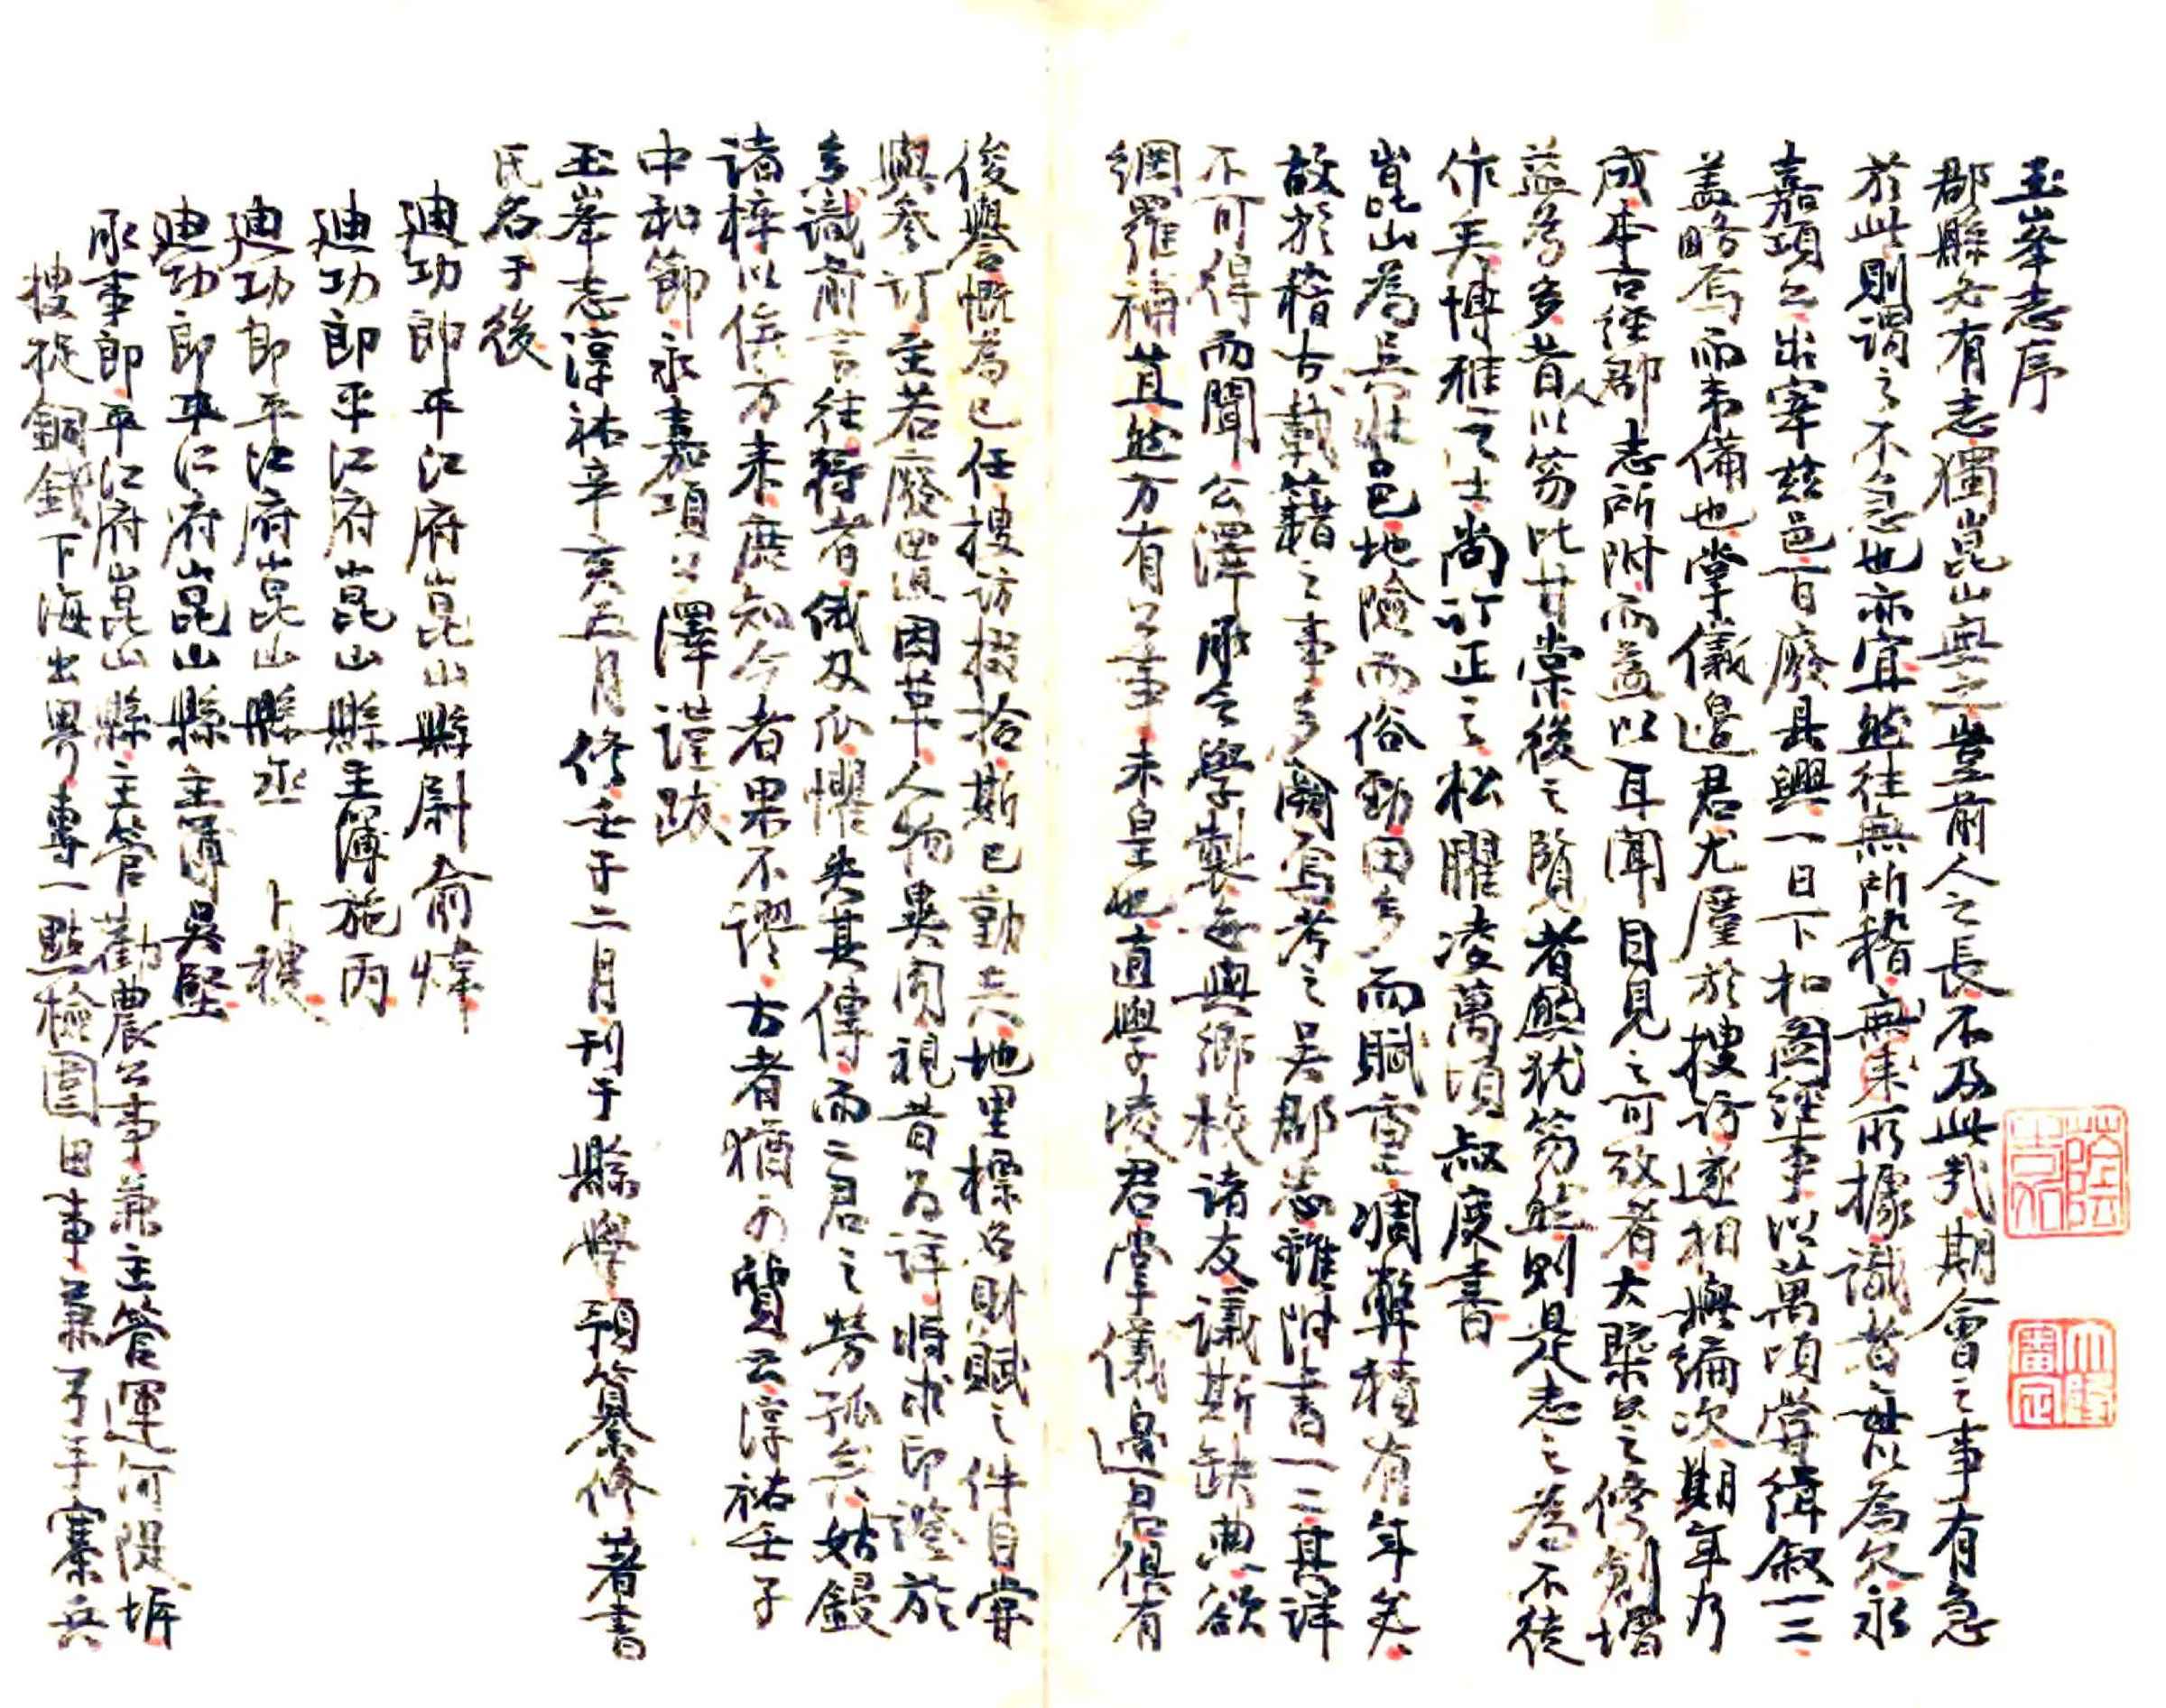 玉峯志序
郡縣必有志獨崑山無之豈前人之長不及此哉期會之事有急
於此則謂之不急也亦宜然往無所稽無來所據識者毎以為欠永
嘉項公出宰茲邑百廢具興一日下札圖經事以萬頃嘗緝叙一二
盖略焉而未備也掌儀邊君尤厪於搜訪遂相與編次期年乃
成本古經郡志所附而益以耳聞目見之可攷者大槩公之修創增
益為多昔人以笏比甘棠後之覽者慇犹笏然則是志之為不徒
作矣博雅之士尚訂正之松臞凌萬頃叔度書
崑山為吳壯邑地險而俗勁田多而賦重凋弊積有年矣
故於稽古載籍之事多闕焉考之吳郡志雖附書一二其詳
不可得而聞公澤承令學製毎與鄉校諸友議斯缺典欲
網羅補苴然方有公事未皇也直學凌君掌儀邊君俱有
俊譽慨為已任搜訪掇拾斯已勤矣地里標名財賦之件目嘗
與參訂至若廢置因革人物異同視昔為詳將求印證於
多識前言往行者俄及瓜懼失其傳而二君之勞孤矣姑鋟
諸梓以俟方來庶知今者果不謬古者猶可質云淳祐壬子
中和節永嘉項公澤謹跋
玉峯志淳祐辛亥五月修壬子二月刊于縣學預纂修著書
氏名于後
廸功郎平江府崑山縣尉俞煒
廸功郎平江府崑山縣主簿施丙
廸功郎平江府崑山縣丞 卜稷
廸功郎平江府崑山縣主簿吳堅
承事郎平江府崑山縣主管勸農公事兼主管運河隄圻
搜捉銅錢下海出界專一點檢圍田事兼弓手寨兵